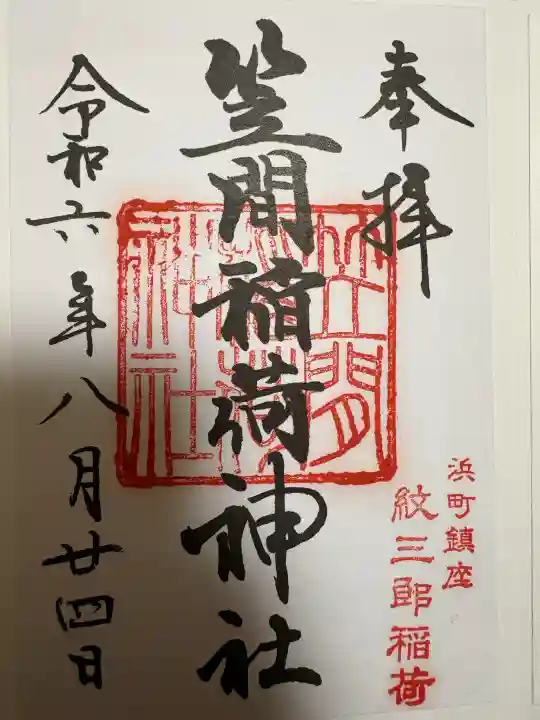 奉拝
浜町鎮座
紋三郎稲荷
笠間稲荷神社
笠間
稲荷
神社
令和六年八月廿四日